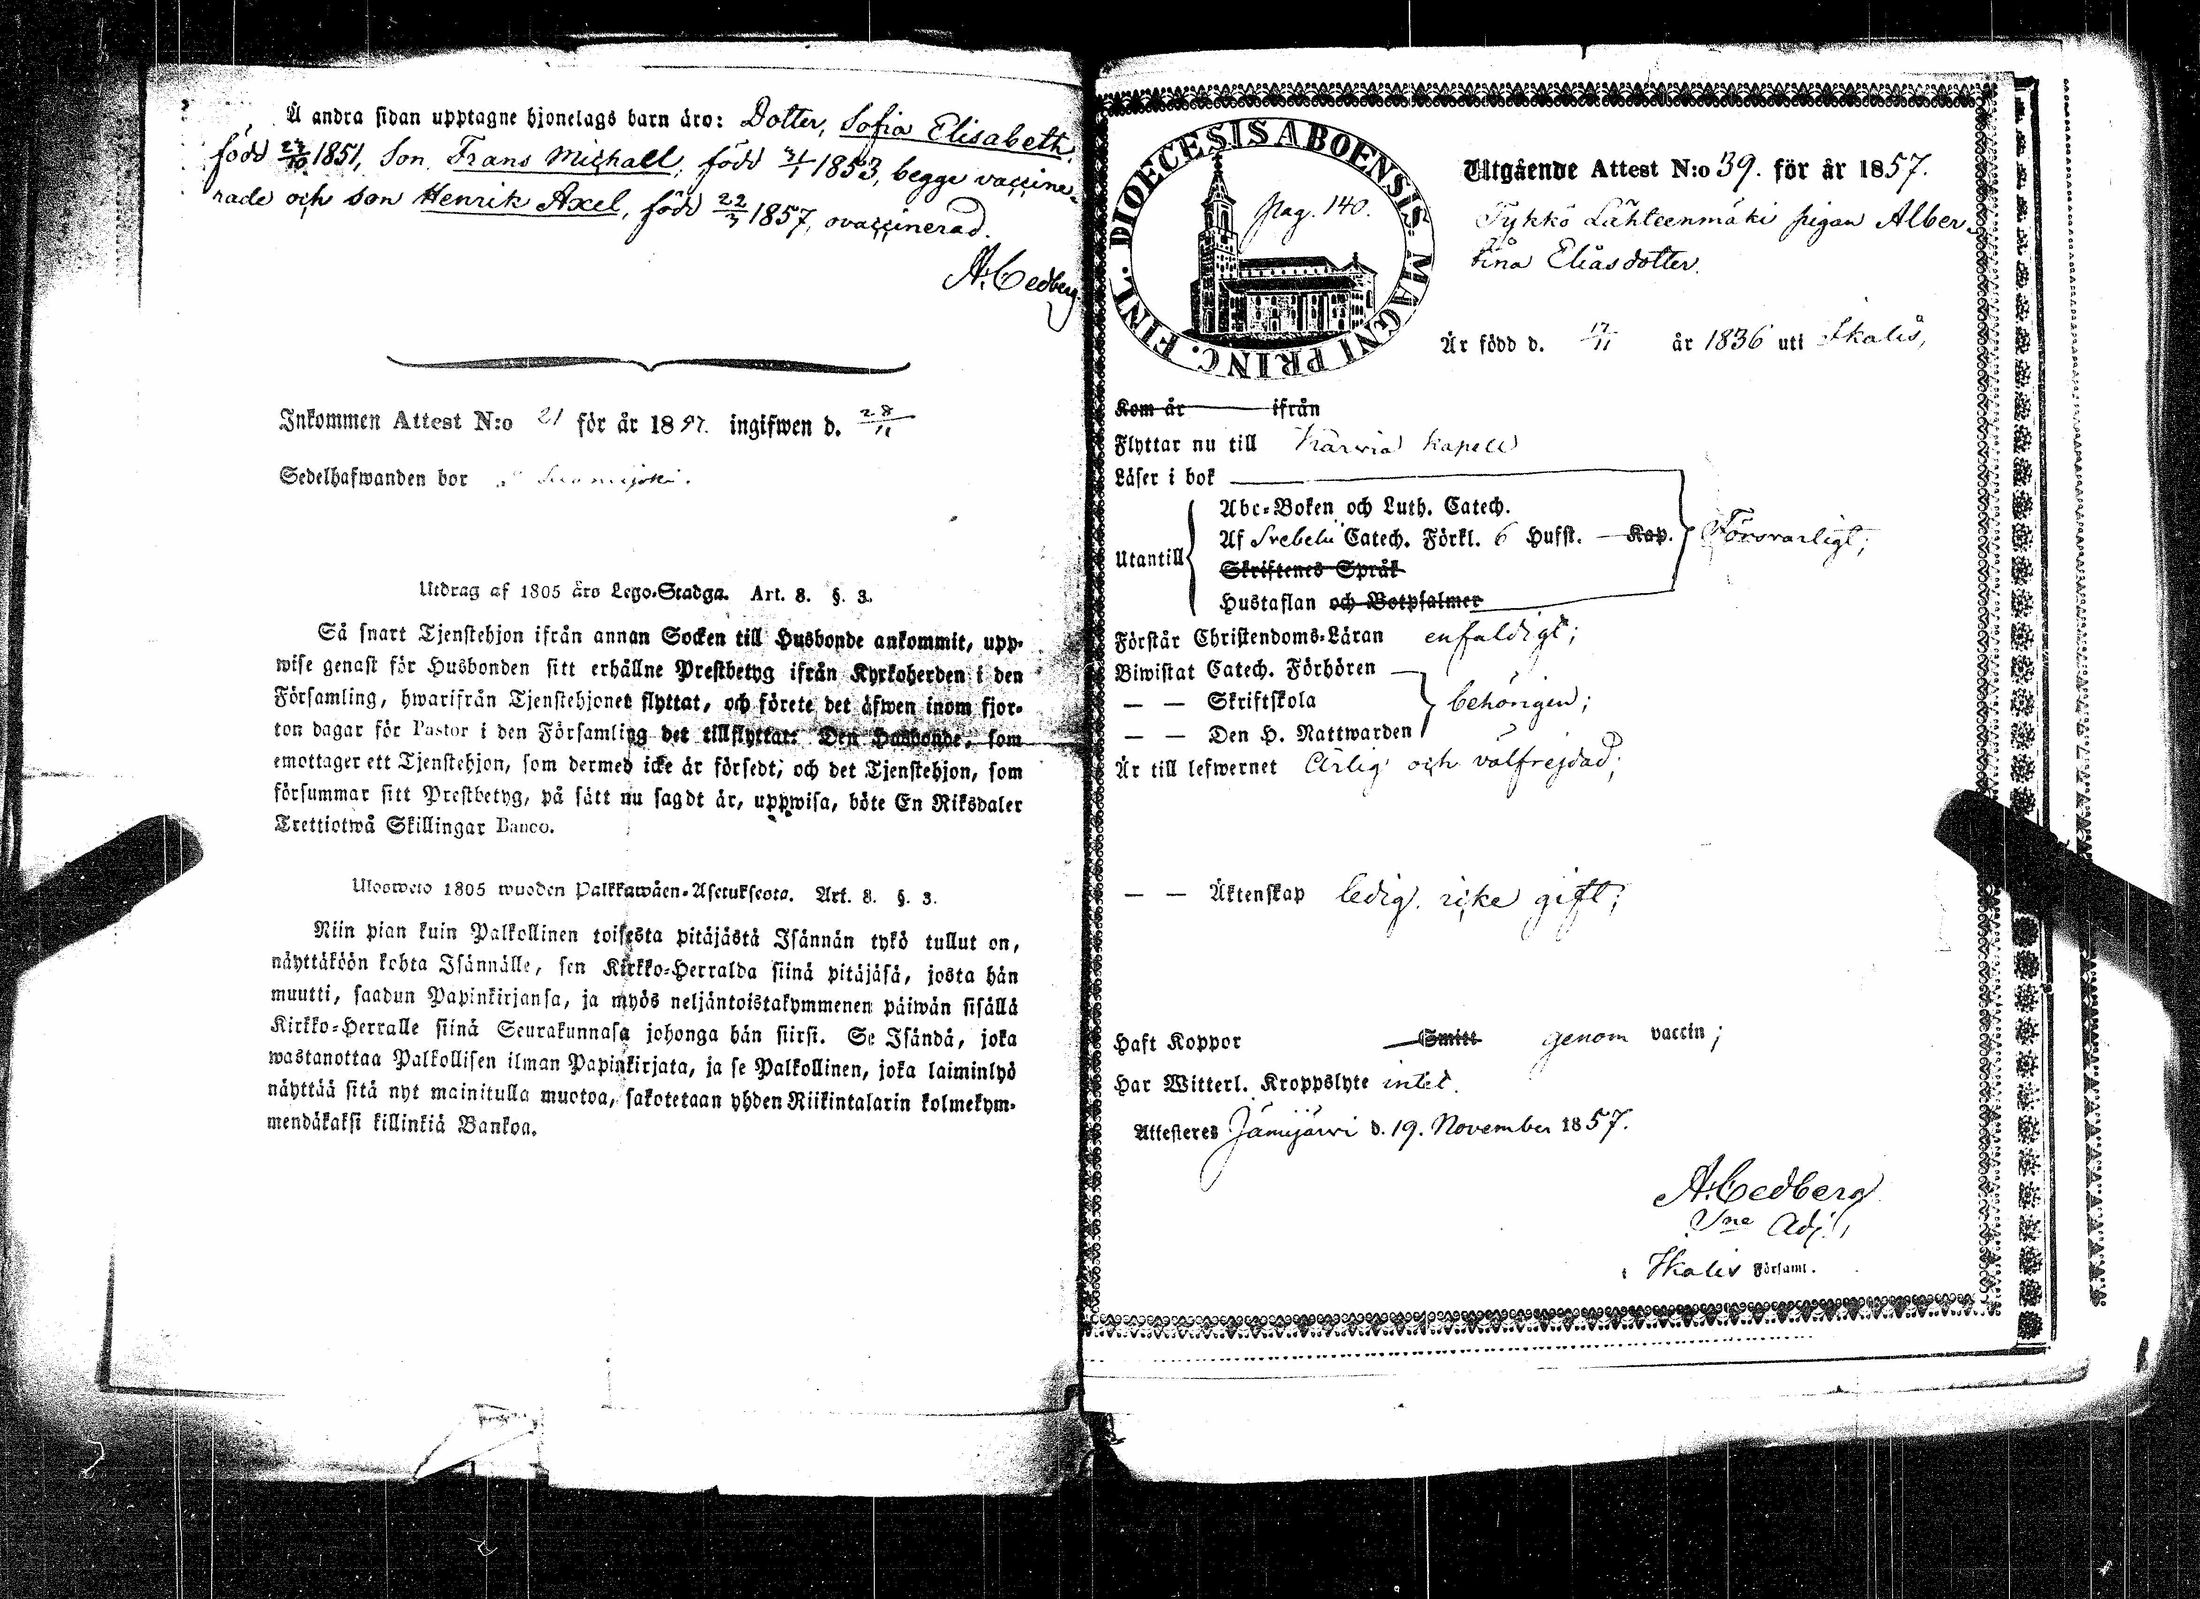 Å andra sidan upptagne hjonelags barn äro: Dotter, Sofia Elisabeth,
född 27/10 1851, Son, Frans Michaell, född 31/1 1853, begge vaccine-
rade och son Henrik Axel, född 22/3 1857, ovaccinerad.
A. Cedberg
Inkommen Attest N:o 21 för år 1857. ingifwen d. 28/11
Sedelhafwanden bor
Utdrag af 1805 års Lego-Stadga. Art. 8. §. 3.
Så snart Tjenstehjon ifrån annan Socken till Husbonde ankommit, upp-
wise genast för Husbonden sitt erhållne Prestbetyg ifrån Kyrkoherden i den
Församling, hwarifrån Tjenstehjonet flyttat, och förete det äfwen inom fjor-
ton dagar för Pastor i den Församling det tillflyttar: Den Husbonde, som
emottager ett Tjenstehjon, som dermed icke är försedt, och det Tjenstehjon, som
försummar sitt Prestbetyg, på sätt nu sagdt är, uppwisa, böte En Riksdaler
Trettiotwå Skillingar Banco.
Ulosweto 1805 wuoden Palkkawäen-Asetuksesta. Art. 8. §. 3.
Niin pian kuin Palkollinen toisesta pitäjästä Isännän tykö tullut on,
näyttäköön kohta Isännälle, sen Kirkko-Herralda siinä pitäjäsä, josta hän
muutti, saadun Papinkirjansa, ja myös neljäntoistakymmenen päiwän sisällä
Kirkko-Herralle siinä Seurakunnasa johonga hän siirsi. Se Isändä, joka
wastanottaa Palkollisen ilman Papinkirjata, ja se Palkollinen, joka laiminlyö
näyttää sitä nyt mainitulla muotoa, sakotetaan yhden Riikintalarin kolmekym-
mendäkaksi killinkiä Bankoa.
DIOECESIS ABOENSIS. MAGNI PRINC. FINL.
pag. 140.
Utgående Attest N:o 39. för år 1857.
Tykkö Lähteenmäki pigan Alber-
tina Eliasdotter.
Är född d. 17/11 år 1836 uti Ikalis,
Kom år ifrån
Flyttar nu till Karvia Kapell
Läser i bok
Utantill
Abc-Boken och Luth. Catech.
Af Svebelii Catech. Förkl. 6 Hufst. Kap.
Försvarligt;
Skriftenes Språk
Hustaflan och Botpsalmer
Förstår Christendoms-Läran enfaldigt;
Biwistat Catech. Förhören
— — Skriftskola
behörigen;
— — Den H. Nattwarden
Är till lefwernet ärlig och välfrejdad;
— — Äktenskap ledig icke gift;
Haft Koppor Smitt genom vaccin;
Har Witterl. Kroppslyte intet.
Attesteres Jämijärvi d. 19. November 1857.
A. Cedberg
Vne Adj.
i Ikalis Församl.